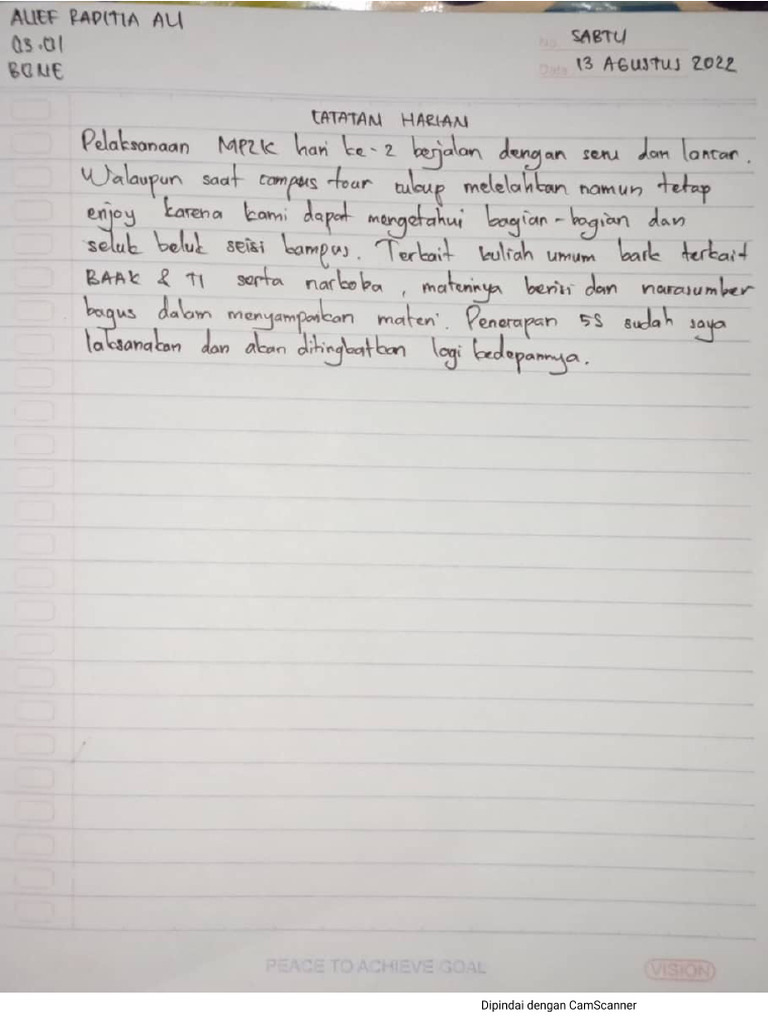 ALIEF RADITIA ALI
03.01
BONE
No.
SABTU
Date
13 AGUSTUS 2022
CATATAN HARIAN
Pelaksanaan MP2K hari ke-2 berjalan dengan seru dan lancar.
Walaupun saat campus tour cukup melelahkan namun tetap
enjoy karena kami dapat mengetahui bagian-bagian dan
seluk beluk seisi kampus. Terkait kuliah umum baik terkait
BAAK & TI serta narkoba, materinya berisi dan narasumber
bagus dalam menyampaikan materi. Penerapan 5S sudah saya
laksanakan dan akan ditingkatkan lagi kedepannya.
PEACE TO ACHIEVE GOAL
VISION
Dipindai dengan CamScanner